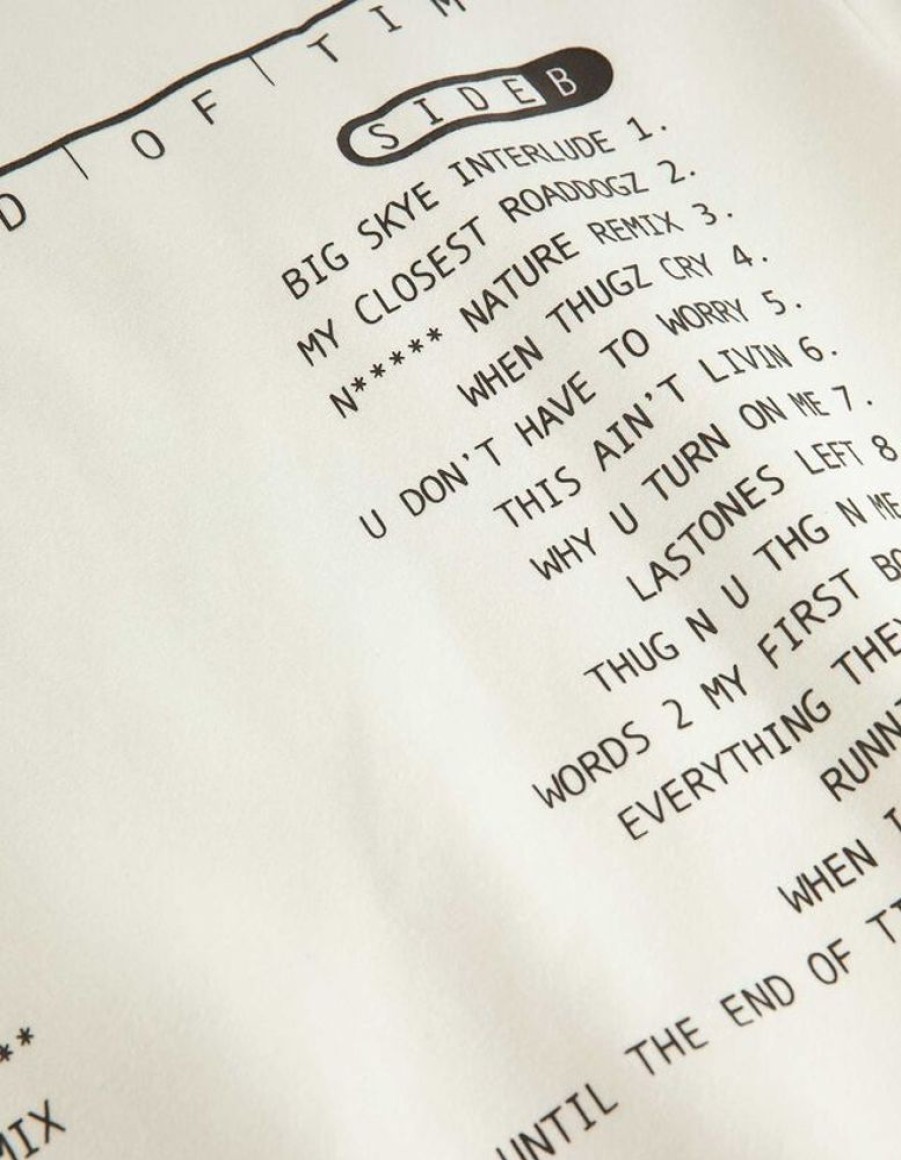 D | OF | TIM
SIDE B
BIG SKYE INTERLUDE 1.
MY CLOSEST ROADDOGZ 2.
N***** NATURE REMIX 3.
WHEN THUGZ CRY 4.
U DON'T HAVE TO WORRY 5.
THIS AIN'T LIVIN 6.
WHY U TURN ON ME 7.
LASTONES LEFT 8
THUG N U THG N ME
WORDS 2 MY FIRST BO
EVERYTHING THEY
RUNN
WHEN I
UNTIL THE END OF TI
**
MIX